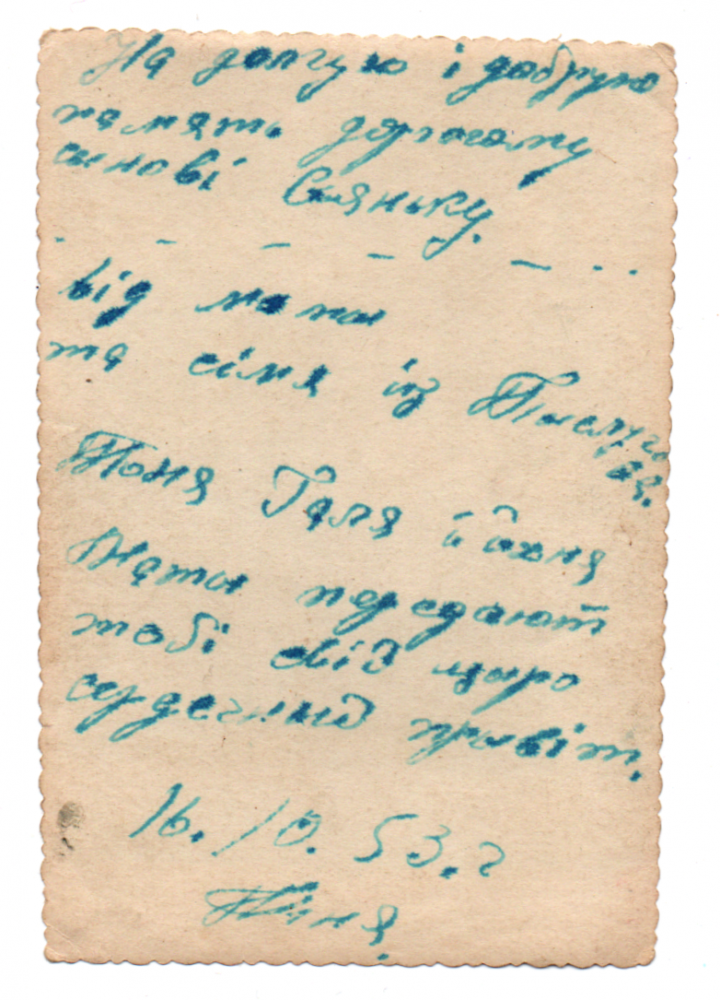 На долгую і добрую
память дорогому
синові Сяньку.
від мами
та сімя із
Тоня Галя й їхня
Мати передают
тобі свій щиро
сердечний привіт.
16. 10. 53. г